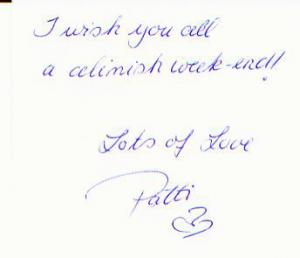 I wish you all
a celinish week-end!
Lots of Love
Patti